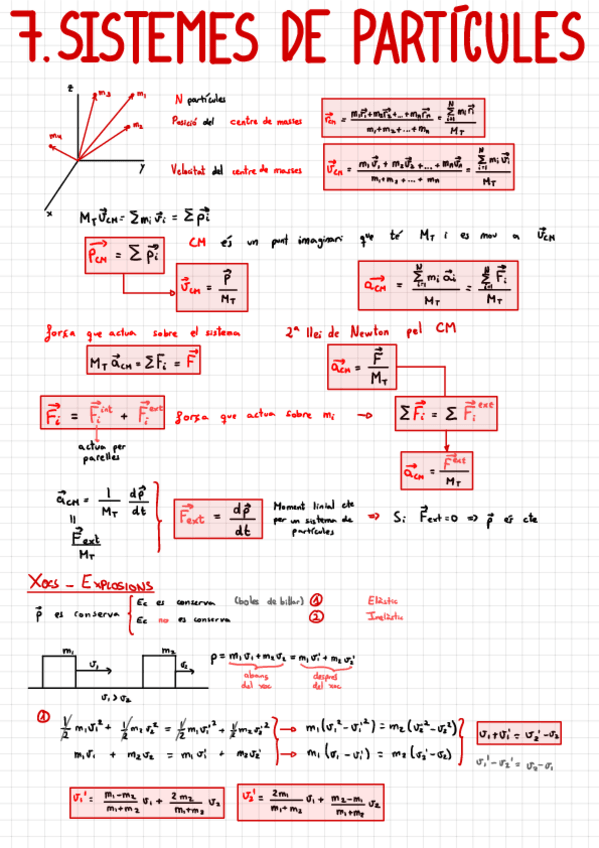 7. SISTEMES DE PARTÍCULES
z
m₃
m₁
m₂
m₄
y
x
N partícules
Posició del centre de masses
r⃗cm = (m₁r⃗₁ + m₂r⃗₂ + ... + mₙr⃗ₙ) / (m₁ + m₂ + ... + mₙ) = (Σᵢ₌₁ᴺ mᵢ r⃗ᵢ) / M_T
Velocitat del centre de masses
v⃗cm = (m₁v⃗₁ + m₂v⃗₂ + ... + mₙv⃗ₙ) / (m₁ + m₂ + ... + mₙ) = (Σᵢ₌₁ᴺ mᵢ v⃗ᵢ) / M_T
M_T v⃗cm = Σ mᵢ v⃗ᵢ = Σ p⃗ᵢ
CM és un punt imaginari que té M_T i es mou a v⃗cm
p⃗cm = Σ p⃗ᵢ
v⃗cm = p⃗ / M_T
a⃗cm = (Σᵢ₌₁ᴺ mᵢ a⃗ᵢ) / M_T = (Σᵢ₌₁ᴺ F⃗ᵢ) / M_T
força que actua sobre el sistema
2ª llei de Newton pel CM
M_T a⃗cm = Σ F⃗ᵢ = F⃗
a⃗cm = F⃗ / M_T
F⃗ᵢ = F⃗ᵢ^int + F⃗ᵢ^ext
força que actua sobre mᵢ →
Σ F⃗ᵢ = Σ F⃗ᵢ^ext
actua per
parelles
a⃗cm = F⃗^ext / M_T
a⃗cm = 1/M_T dp⃗/dt
=
F⃗ext / M_T
F⃗ext = dp⃗/dt
Moment linial cte
per un sistema de
partícules
⇒ Si F⃗ext = 0 ⇒ p⃗ és cte
XOCS - EXPLOSIONS
p⃗ es conserva
Ec es conserva (boles de billar) ① Elàstic
Ec no es conserva ② Inelàstic
m₁
v₁
m₂
v₂
v₁ > v₂
p = m₁v₁ + m₂v₂ = m₁v₁' + m₂v₂'
abans
del xoc
després
del xoc
① 1/2 m₁v₁² + 1/2 m₂v₂² = 1/2 m₁v₁'² + 1/2 m₂v₂'² → m₁(v₁² - v₁'²) = m₂(v₂'² - v₂²)
m₁v₁ + m₂v₂ = m₁v₁' + m₂v₂' → m₁(v₁ - v₁') = m₂(v₂' - v₂)
v₁ + v₁' = v₂' - v₂
v₁' - v₂' = v₂ - v₁
v₁' = (m₁ - m₂)/(m₁ + m₂) v₁ + 2m₂/(m₁ + m₂) v₂
v₂' = 2m₁/(m₁ + m₂) v₁ + (m₂ - m₁)/(m₁ + m₂) v₂